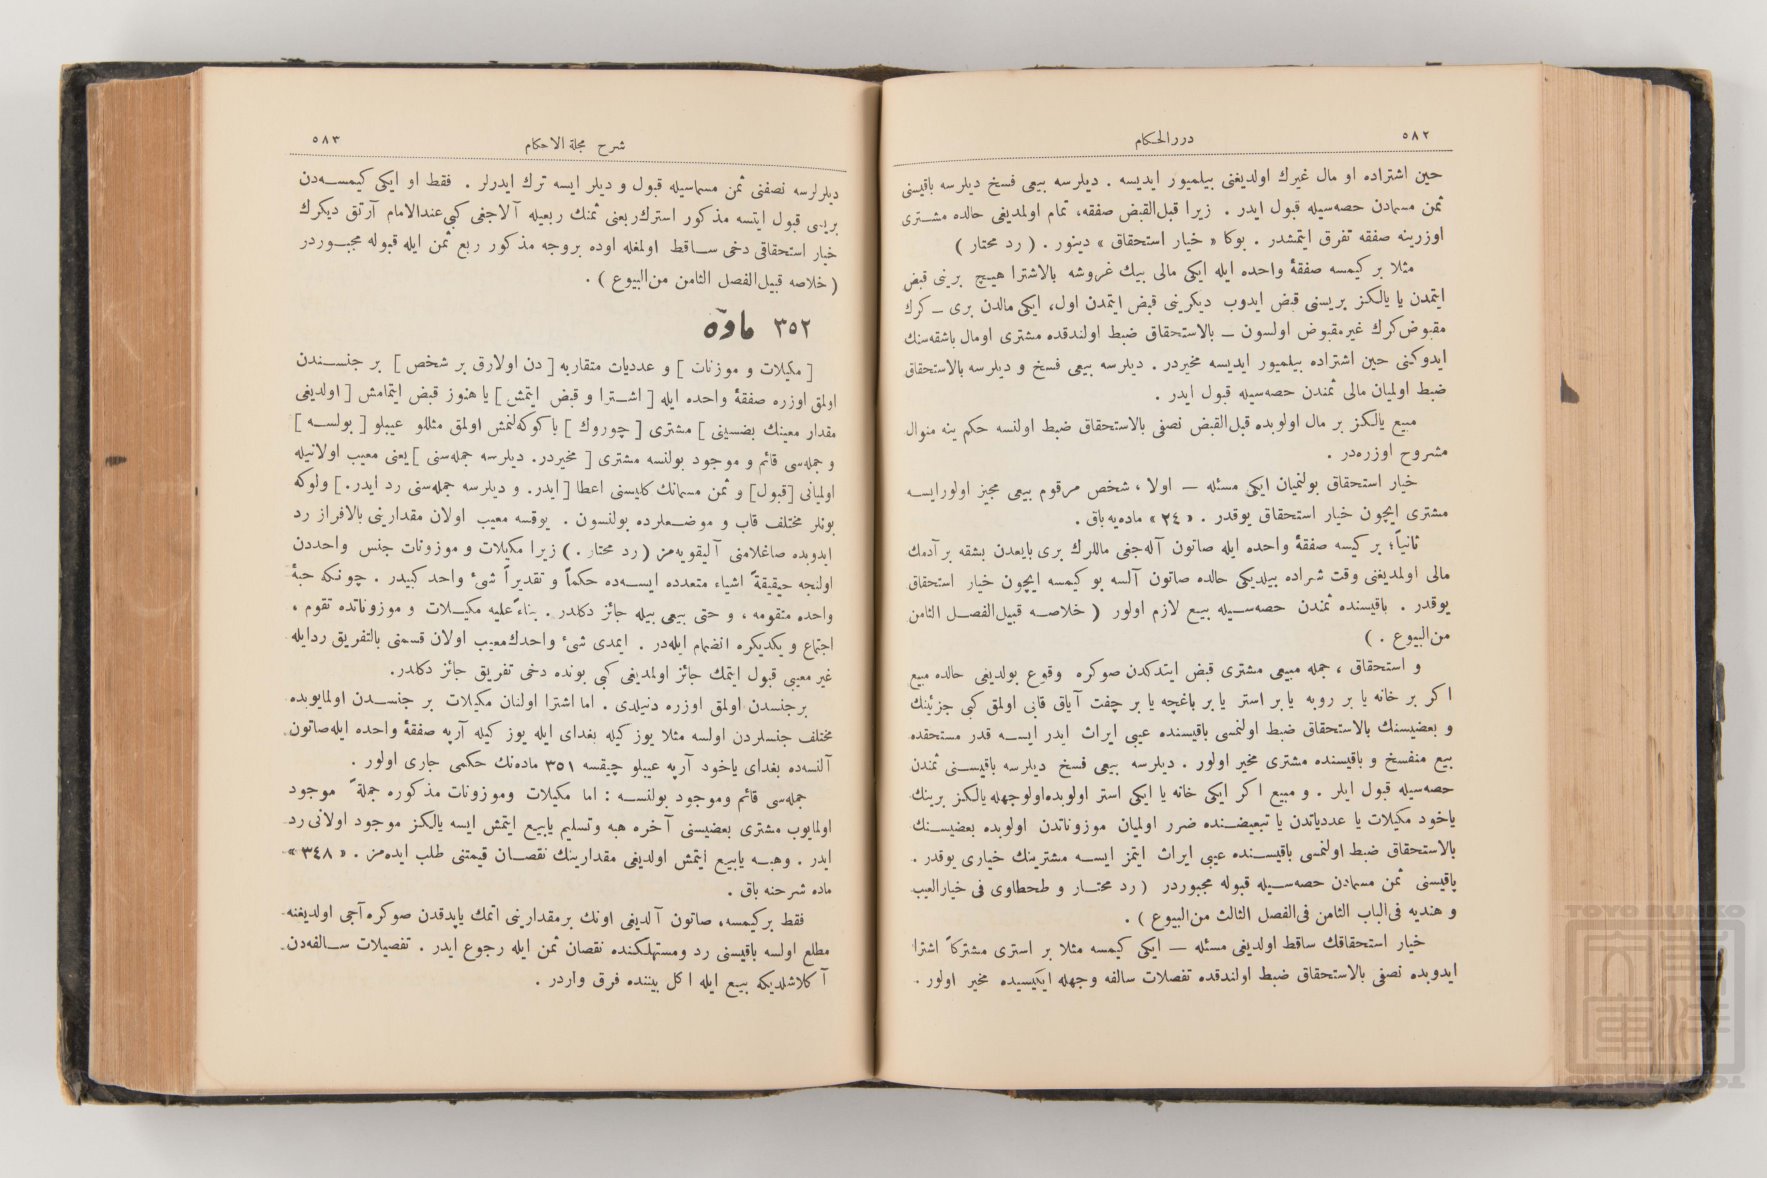 ٥٨٢
دررالحكام
حين اشتراده او مال غيرك اولديغنى بيلميور ايديسه . ديلرسه بيعى فسخ ديلرسه باقيسنى
ثمن مسمادن حصه‌سيله قبول ايدر . زيرا قبل‌القبض صفقه، تمام اولمديغى حالده مشترى
اوزرينه صفقه تفرق ايتمشدر . بوكا « خيار استحقاق » دينور . ( رد محتار )
مثلا بر كيمسه صفقۀ واحده ايله ايكى مالى بيك غروشه بالاشترا هيچ برينى قبض
ايتمدن يا يالكز بريسنى قبض ايدوب ديكرينى قبض ايتمدن اول، ايكى مالدن برى ــ كرك
مقبوض كرك غيرمقبوض اولسون ــ بالاستحقاق ضبط اولندقده مشترى اومال باشقه‌سنك
ايدوكنى حين اشتراده بيلميور ايديسه مخيردر . ديلرسه بيعى فسخ و ديلرسه بالاستحقاق
ضبط اولميان مالى ثمندن حصه‌سيله قبول ايدر .
مبيع يالكز بر مال اولوبده قبل‌القبض نصفى بالاستحقاق ضبط اولنسه حكم ينه منوال
مشروح اوزره‌در .
خيار استحقاق بولنميان ايكى مسئله ــ اولا ، شخص مرقوم بيعى مجيز اولورايسه
مشترى ايچون خيار استحقاق يوقدر . « ٢٤ » ماده‌يه باق .
ثانياً؛ بر كيسه صفقۀ واحده ايله صاتون آله‌جغى ماللرك برى بايعدن بشقه بر آدمك
مالى اولمديغنى وقت شراده بيلديكى حالده صاتون آلسه بو كيمسه ايچون خيار استحقاق
يوقدر . باقيسنده ثمندن حصه‌سيله بيع لازم اولور ( خلاصه قبيل‌الفصل الثامن
من‌البيوع . )
و استحقاق ، جمله مبيعى مشترى قبض ايتدكدن صوكره وقوع بولديغى حالده مبيع
اكر بر خانه يا بر روبه يا بر استر يا بر باغچه يا بر چفت آياق قابى اولمق كبى جزئينك
و بعضيسنك بالاستحقاق ضبط اولنمسى باقيسنده عيبى ايراث ايدر ايسه قدر مستحقده
بيع منفسخ و باقيسنده مشترى مخير اولور . ديلرسه بيعى فسخ ديلرسه باقيسنى ثمندن
حصه‌سيله قبول ايلر . و مبيع اكر ايكى خانه يا ايكى استر اولوبده‌اولوجهله يالكز برينك
ياخود مكيلات يا عددياتدن يا تبعيضنده ضرر اولميان موزوناتدن اولوبده بعضيسنك
بالاستحقاق ضبط اولنمسى باقيسنده عيبى ايراث ايتمز ايسه مشترينك خيارى يوقدر .
باقيسنى ثمن مسمادن حصه‌سيله قبوله مجبوردر ( رد محتار و طحطاوى فى خيارالعيب
و هنديه فى‌الباب الثامن فى‌الفصل الثالث من‌البيوع ) .
خيار استحقاقك ساقط اولديغى مسئله ــ ايكى كيمسه مثلا بر استرى مشتركاً اشترا
ايدوبده نصفى بالاستحقاق ضبط اولندقده تفصلات سالفه وجهله ايكيسيده مخير اولور .
شرح مجلة الاحكام
٥٨٣
ديلرلرسه نصفنى ثمن مسماسيله قبول و ديلر ايسه ترك ايدرلر . فقط او ايكى كيمسه‌دن
بريى قبول ايتسه مذكور استرك ربعنى ثمنك ربعيله آلاجغى كبى عندالامام آرتق ديكرك
خيار استحقاقى دخى ساقط اولمغله اوده بروجه مذكور ربع ثمن ايله قبوله مجبوردر
( خلاصه قبيل‌الفصل الثامن من‌البيوع ) .
٣٥٢ ماده
[ مكيلات و موزنات ] و عدديات متقاربه [ دن اولارق بر شخص ] بر جنسندن
اولمق اوزره صفقۀ واحده ايله [ اشترا و قبض ايتمش ] يا هنوز قبض ايتمامش [ اولديغى
مقدار معينك بضسينى ] مشترى [ چوروك ] با كوكه‌لنمش اولمق مثللو عيبلو [ بولسه ]
و جمله‌سى قائم و موجود بولنسه مشترى [ مخيردر. ديلرسه جمله‌سنى ] يعنى معيب اولانيله
اولميانى [قبول] و ثمن مسمانك كليسنى اعطا [ ايدر. و ديلرسه جمله‌سنى رد ايدر. ] ولوكه
بونلر مختلف قاب و موضعلرده بولنسون . يوقسه معيب اولان مقدارينى بالافراز رد
ايدوبده صاغلامنى آليقويه‌من ( رد محتار . ) زيرا مكيلات و موزونات جنس واحددن
اولنجه حقيقةً اشياء متعدده ايسه‌ده حكماً و تقديراً شئ واحد كبيدر . چونكه حبۀ
واحده متقومه ، و حتى بيعى بيله جائز دكلدر . بناءً عليه مكيلات و موزوناتده تقوم ،
اجتماع و يكديكره انضمام ايله‌در . ايمدى شئ واحدك معيب اولان قسمنى بالتفريق ردايله
غير معيبى قبول ايتمك جائز اولمديغى كبى بونده دخى تفريق جائز دكلدر.
برجنسدن اولمق اوزره دنيلدى . اما اشترا اولنان مكيلات بر جنسدن اولمايوبده
مختلف جنسلردن اولسه مثلا يوز كيله بغداى ايله يوز كيله آرپه صفقۀ واحده ايله‌صاتون
آلنسه‌ده بغداى ياخود آرپه عيبلو چيقسه ٣٥١ ماده‌نك حكمى جارى اولور .
جمله‌سى قائم وموجود بولنسه : اما مكيلات وموزونات مذكوره جملةً موجود
اولمايوب مشترى بعضيسنى آخره هبه وتسليم يابيع ايتمش ايسه يالكز موجود اولانى رد
ايدر . وهبه يابيع ايتمش اولديغى مقدارينك نقصان قيمتنى طلب ايده‌من . « ٣٤٨ »
ماده شرحنه باق .
فقط بركيمسه، صاتون آلديغى اونك برمقدارينى اتمك ياپدقدن صوكره آجى اولديغنه
مطلع اولسه باقيسنى رد ومستهلكنده نقصان ثمن ايله رجوع ايدر . تفصيلات سالفه‌دن
آكلاشلديكه بيع ايله اكل بيننده فرق واردر .
TOYO BUNKO